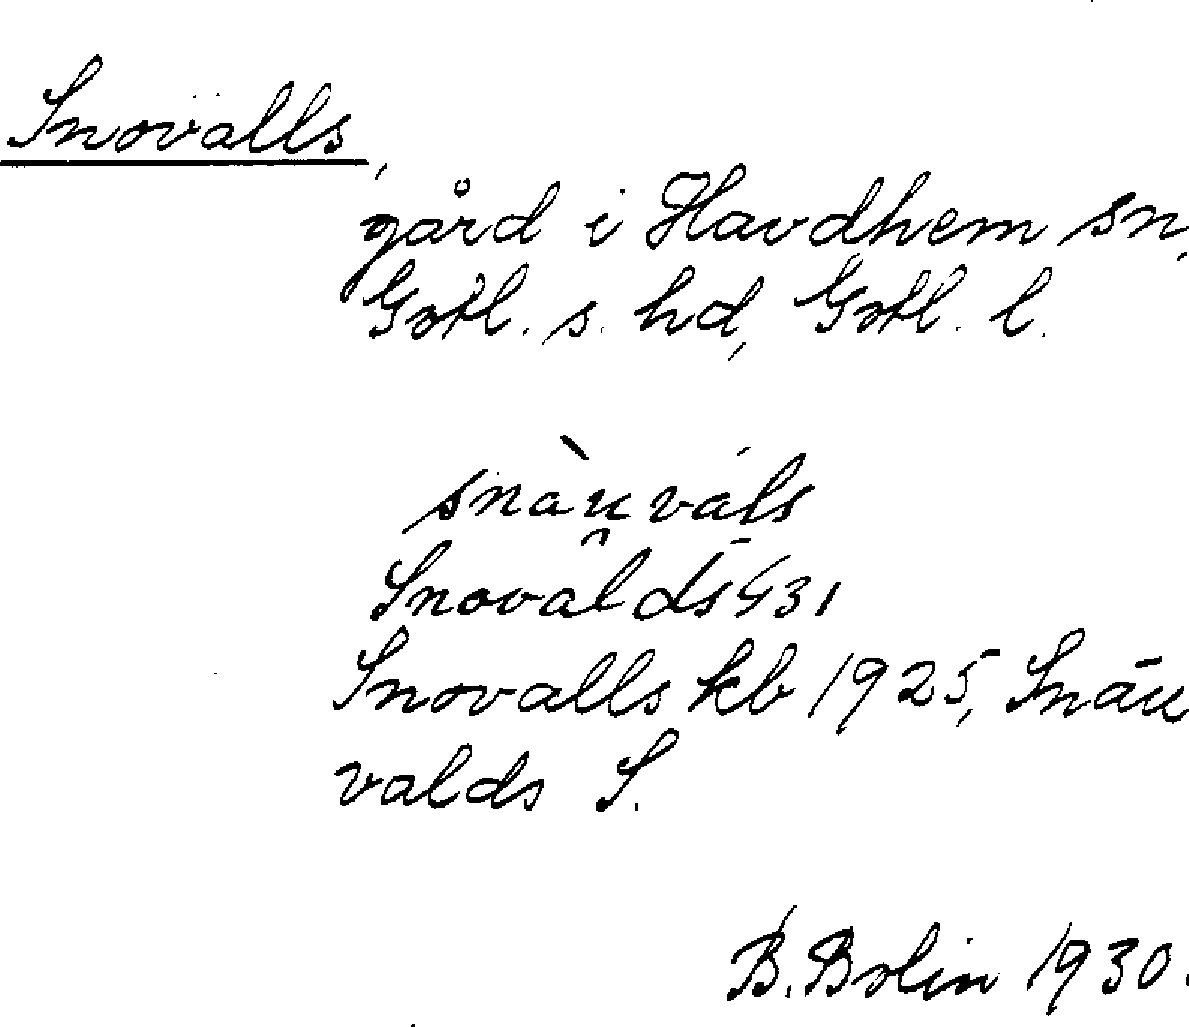 Snovalls,
gård i Havdhem sn,
Gotl. s. hd, Gotl. l.
snàu̯váls
Snovalds G 31
Snovalls kb 1925, Snäu
valds S.
B. Bolin 1930.